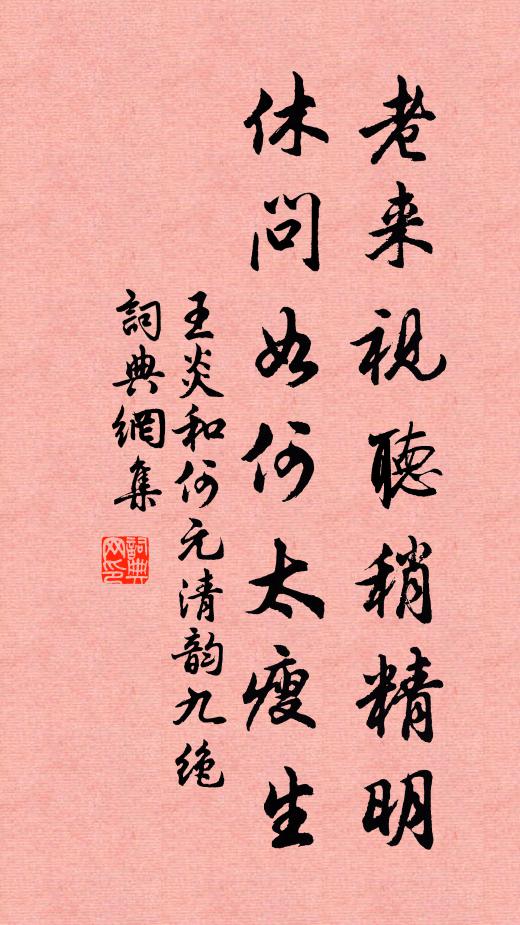 老来視聴稍精明
休问如何太瘦生
王炎和何元清韵九绝
詞典網集
詞典网印